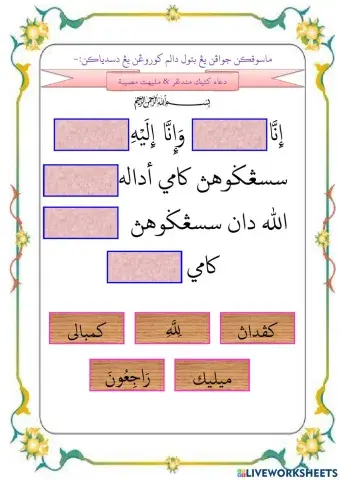 ماسوقكن جواڤن يڠ بتول دالم كوروڠن يڠ دسدياكن:-
دعاء كتيك مندڠر & مليهت مصيبة
بسم الله الرحمن الرحيم
إِنَّا وَإِنَّا إِلَيْهِ
سسڠݢوهڽ كامي أداله
الله دان سسڠݢوهڽ
كامي
كڤداڽ لِلَّهِ كمبالى
ميليك رَاجِعُونَ
LIVEWORKSHEETS